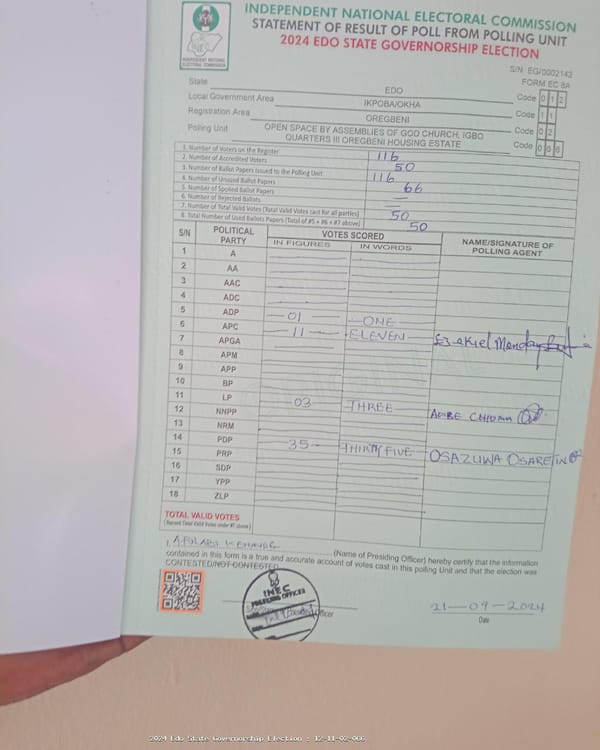 INDEPENDENT NATIONAL ELECTORAL COMMISSION
STATEMENT OF RESULT OF POLL FROM POLLING UNIT
2024 EDO STATE GOVERNORSHIP ELECTION
INEC
INDEPENDENT NATIONAL ELECTORAL COMMISSION
S/N: EG/0002142
FORM EC 8A
State EDO Code 0 1 2
Local Government Area IKPOBA/OKHA Code 1 1
Registration Area OREGBENI Code 0 2
Polling Unit OPEN SPACE BY ASSEMBLIES OF GOD CHURCH, IGBO QUARTERS III OREGBENI HOUSING ESTATE Code 0 6 6
1. Number of Voters on the Register 116
2. Number of Accredited Voters 50
3. Number of Ballot Papers Issued to the Polling Unit 116
4. Number of Unused Ballot Papers 66
5. Number of Spoiled Ballot Papers —
6. Number of Rejected Ballots —
7. Number of Total Valid Votes (Total Valid Votes cast for all parties) 50
8. Total Number of Used Ballots Papers (Total of #5 + #6 + #7 above) 50
S/N POLITICAL PARTY VOTES SCORED NAME/SIGNATURE OF POLLING AGENT
IN FIGURES IN WORDS
1 A
2 AA
3 AAC
4 ADC
5 ADP 01 ONE
6 APC 11 ELEVEN Ezekiel Monday
7 APGA
8 APM
9 APP
10 BP
11 LP 03 THREE
12 NNPP
13 NRM
14 PDP 35 THIRTY FIVE OSAZUWA OSARETIN
15 PRP
16 SDP
17 YPP
18 ZLP
TOTAL VALID VOTES
(Record Total Valid Votes under #7 above)
I, (Name of Presiding Officer) hereby certify that the information
contained in this form is a true and accurate account of votes cast in this polling Unit and that the election was
CONTESTED/NOT CONTESTED
INEC
PRESIDING OFFICER
21-09-2024
Date
2024 Edo State Governorship Election : 12-11-02-066